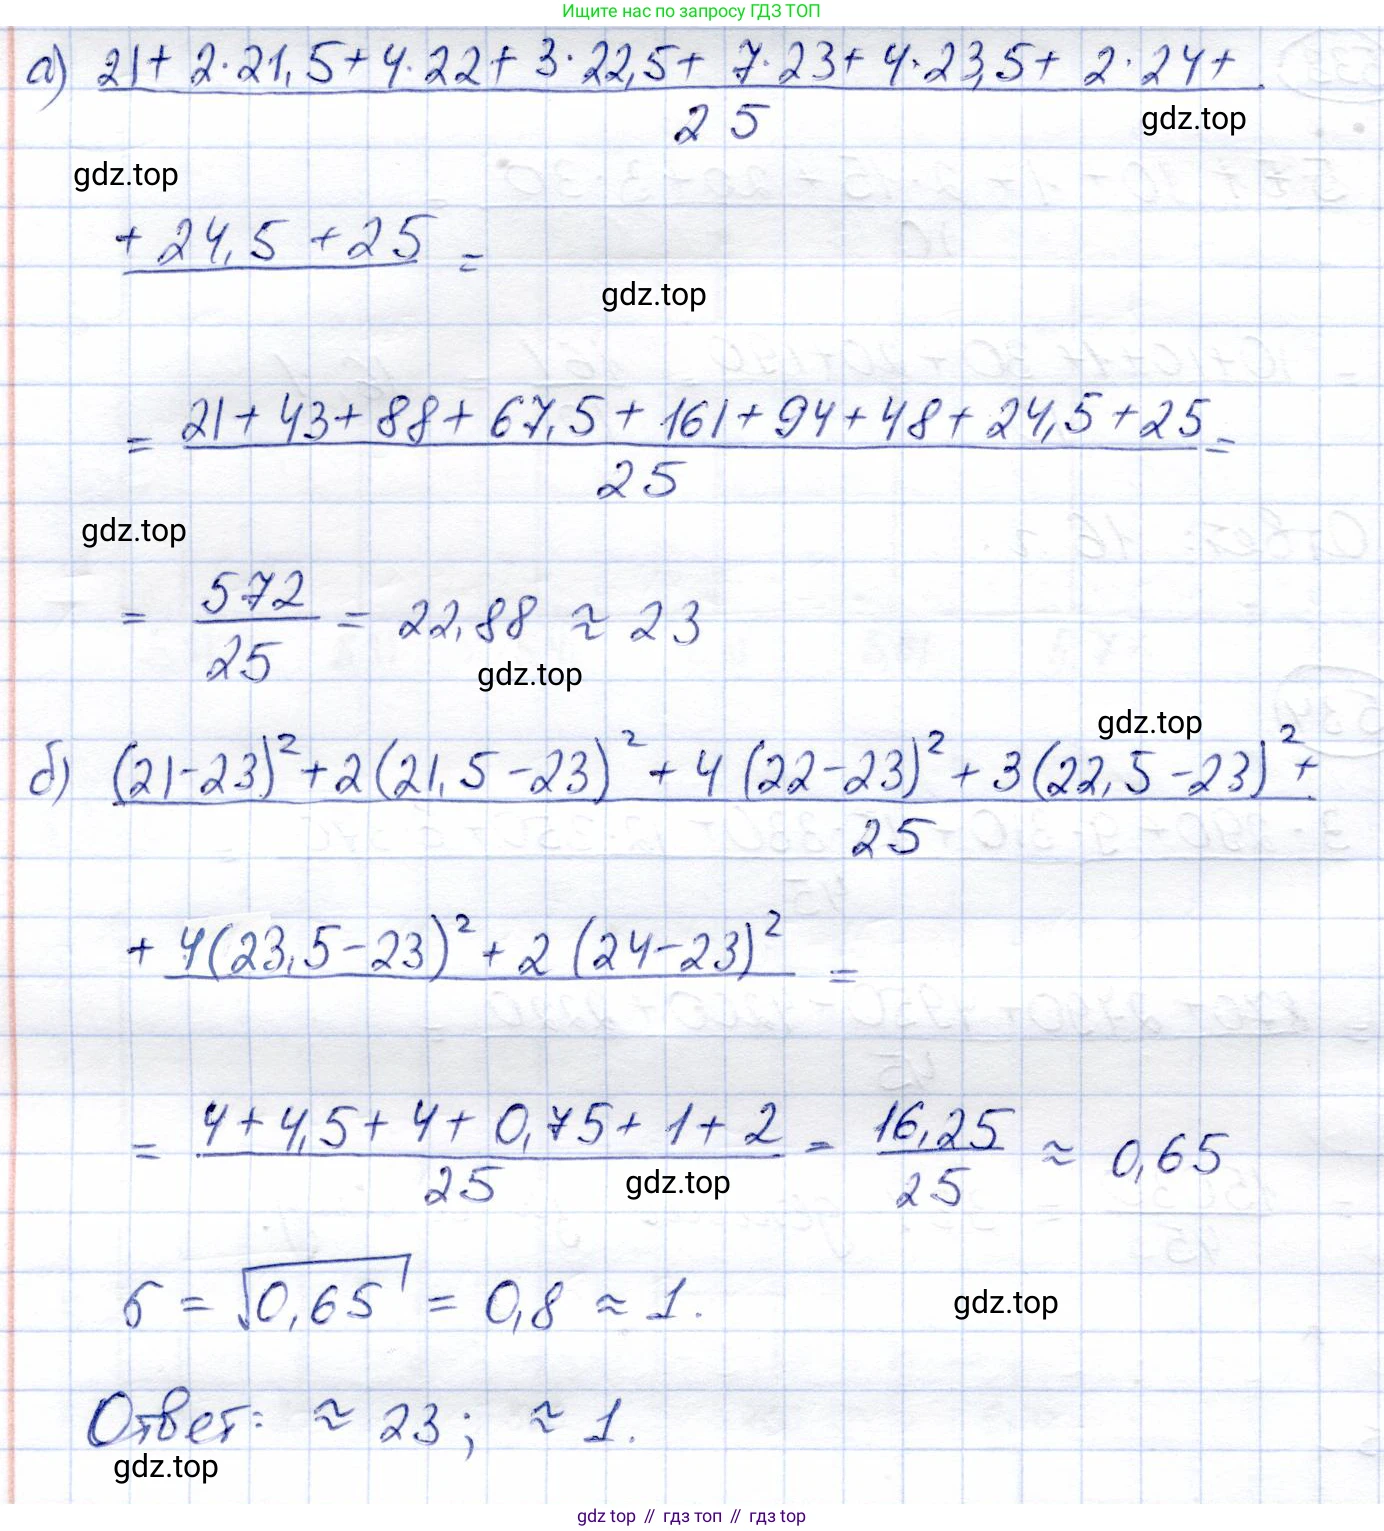 Ищите нас по запросу ГДЗ ТОП
а) 21 + 2·21,5 + 4·22 + 3·22,5 + 7·23 + 4·23,5 + 2·24 +
25
gdz.top
gdz.top
+ 24,5 + 25 =
gdz.top
= 21 + 43 + 88 + 67,5 + 161 + 94 + 48 + 24,5 + 25 =
25
gdz.top
= 572/25 = 22,88 ≈ 23
gdz.top
gdz.top
б) (21-23)² + 2(21,5-23)² + 4(22-23)² + 3(22,5-23)² +
25
+ 4(23,5-23)² + 2(24-23)² =
= 4 + 4,5 + 4 + 0,75 + 1 + 2 / 25 = 16,25/25 ≈ 0,65
gdz.top
б = √0,65 = 0,8 ≈ 1.
gdz.top
Ответ: ≈ 23; ≈ 1.
gdz.top
gdz top // гдз топ // гдз top